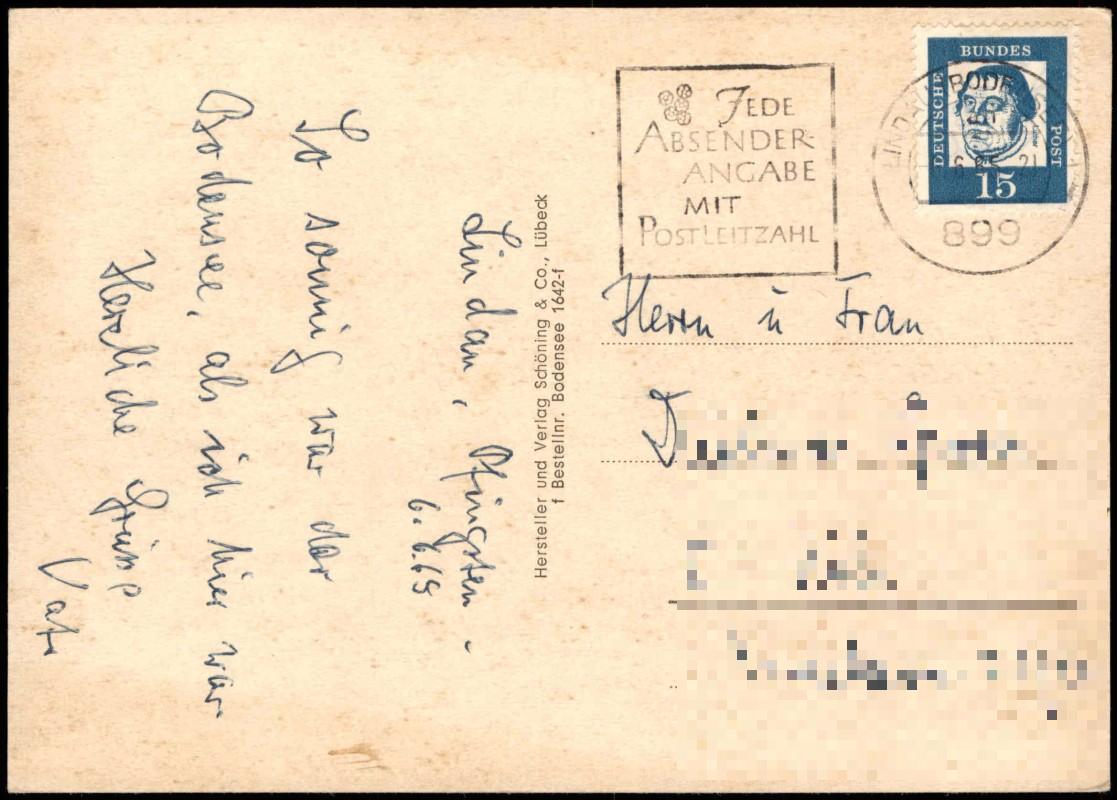 Lindau, Pfingsten -
6.6.65
So sonnig war der
Bodensee, als ich hier war.
Herzliche Grüsse
Vati
Hersteller und Verlag Schöning & Co., Lübeck
f Bestellnr. Bodensee 1642-f
JEDE
ABSENDER-
ANGABE
MIT
POSTLEITZAHL
DEUTSCHE
BUNDES
POST
15
899
Herrn u Frau